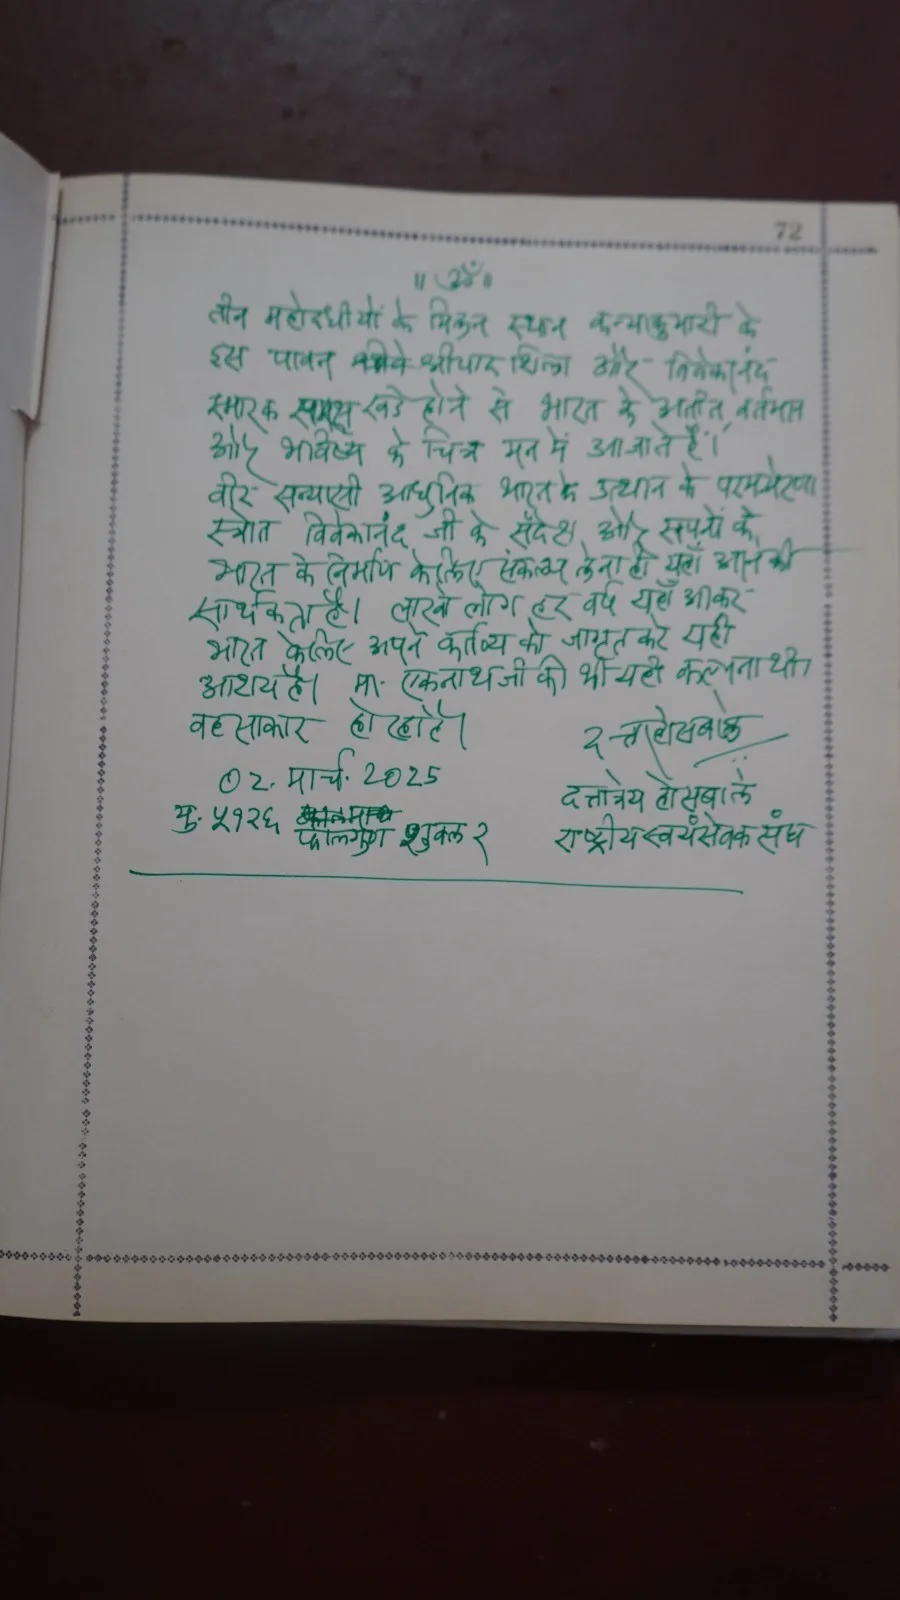 72
॥ ॐ ॥
तीन महोदधीयों के मिलन स्थान कन्याकुमारी के
इस पावन श्रीपाद शिला और विवेकानंद
स्मारक खडे होने से भारत के अतीत, वर्तमान
और भविष्य के चित्र मन में आजाते हैं।
वीर सन्यासी आधुनिक भारत के उत्थान के परमप्रेरणा
स्त्रोत विवेकानंद जी के संदेश और सपनों के
भारत के निर्माण केलिए संकल्प लेना ही यहाँ आने की
सार्थकता है। लाखों लोग हर वर्ष यहाँ आकर
भारत केलिए अपने कर्तव्य को जागृत करे यही
आशय है। मा. एकनाथजी की भी यही कल्पना थी।
वह साकार हो रहा है।
दत्ता होसबाळे
02. मार्च. 2025
दत्तात्रेय होसबाले
यु. ५१२६ फाल्गुण शुक्ल ३
राष्ट्रीय स्वयंसेवक संघ